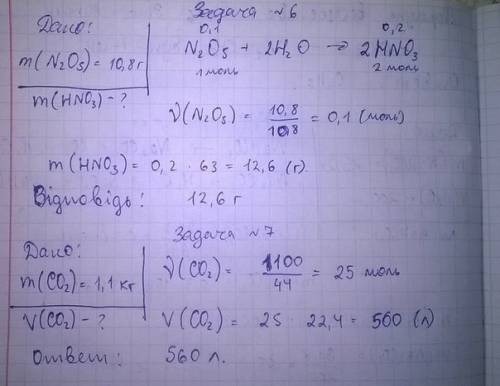 Задача №6
Дано:
m(N2O5) = 10,8 г
m(HNO3) - ?
0,1 0,2
N2O5 + 2H2O → 2HNO3
1 моль 2 моль
ν(N2O5) = 10,8 / 108 = 0,1 (моль)
m(HNO3) = 0,2 · 63 = 12,6 (г).
Відповідь: 12,6 г
Задача №7
Дано:
m(CO2) = 1,1 кг
V(CO2) - ?
ν(CO2) = 1100 / 44 = 25 моль
V(CO2) = 25 · 22,4 = 560 (л)
Ответ: 560 л.